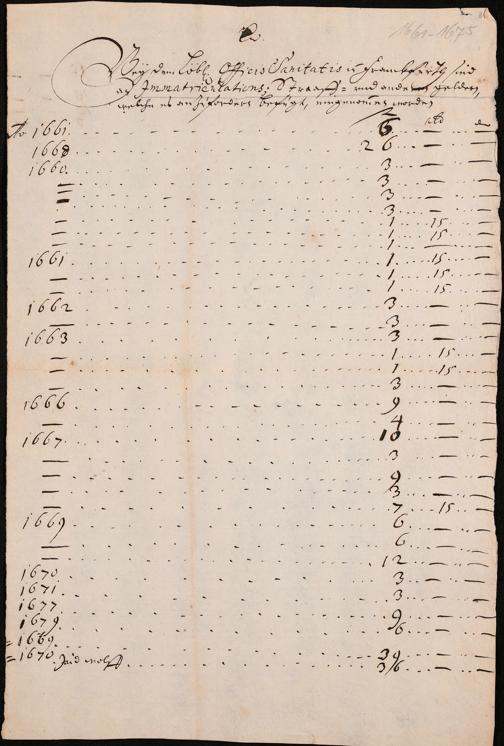 1661-1675
Bey dem Löbl. Officio Sanitatis in Franckfurth sind
an Immatriculations, Straaff- und andern geldern,
welche es anzufordern befugt, eingenommen worden
Ao 1661. 6
1668 26 —
1660. 3 —
— 3 —
— 3 —
— 3 —
— 1 15
— 1 15
— 1 —
1661 1 15
— 1 15
— 1 15
1662 3 —
— 3 —
1663 3 —
— 1 15
— 1 15
— 3 —
1666 9 —
— 4 —
1667 10 —
— 3 —
— 9 —
— 3 —
— 7 15
1669 6 —
— 6 —
— 12 —
1670. 3 —
1671 3 —
1677
1679. 9 —
1669. 6 —
1670. 39 —
36 —